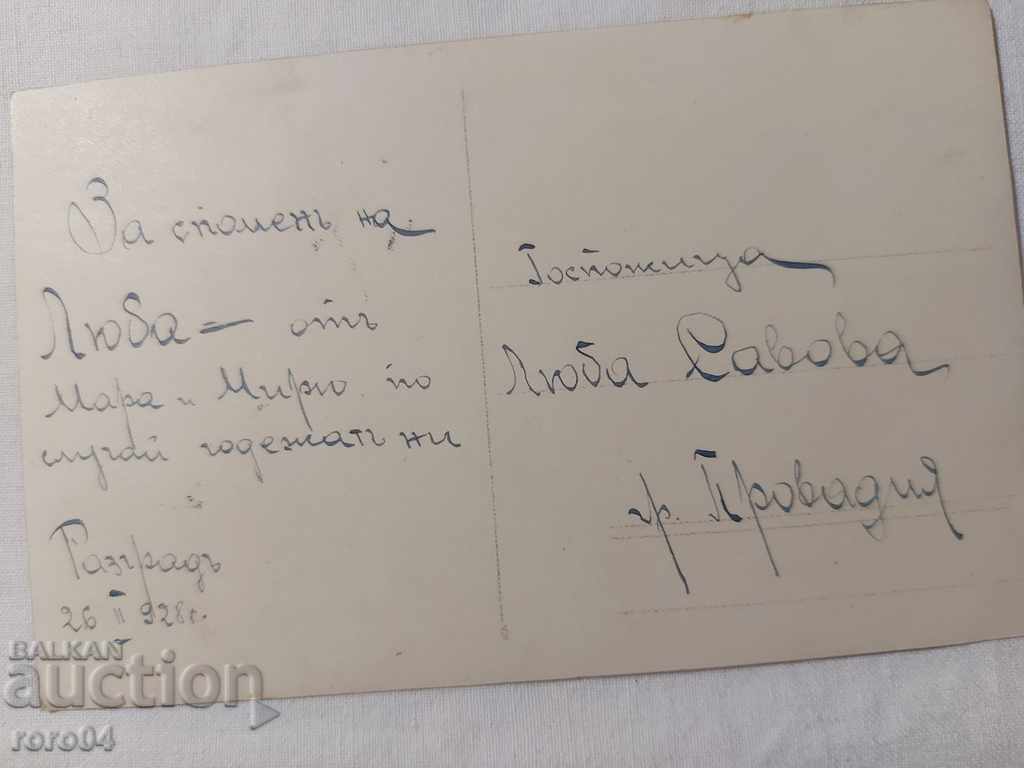 За споменъ на
Люба – отъ
Мара и Мирю по
случай годежатъ ни
Разградъ
26 II 928 г.
Госпожица
Люба Савова
гр. Провадия
BALKAN
auction
roro04